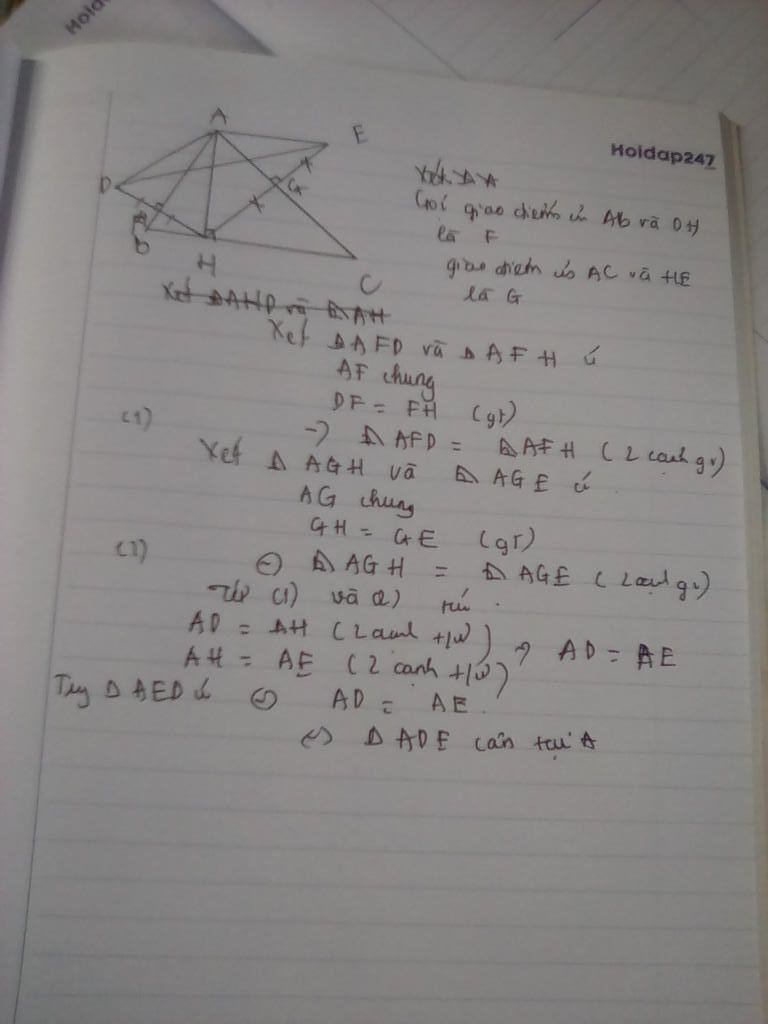 Holdap247
A
E
D
G
B
H
C
Xét Δ A
Gọi giao điểm của Ab và DH
là F
giao điểm của AC và HE
là G
Xét ΔAHD và ΔAH
Xét ΔAFD và ΔAFH có
AF chung
DF = FH (gt)
(1)
→ ΔAFD = ΔAFH (2 cạnh gv)
Xét ΔAGH và ΔAGE có
AG chung
GH = GE (gt)
(2)
ΔAGH = ΔAGE (2 cạnh gv)
Từ (1) và (2)
AD = AH (2 cạnh t/ứ) → AD = AE
AH = AE (2 cạnh t/ứ)
ΔAED có AD = AE
ΔADE cân tại A